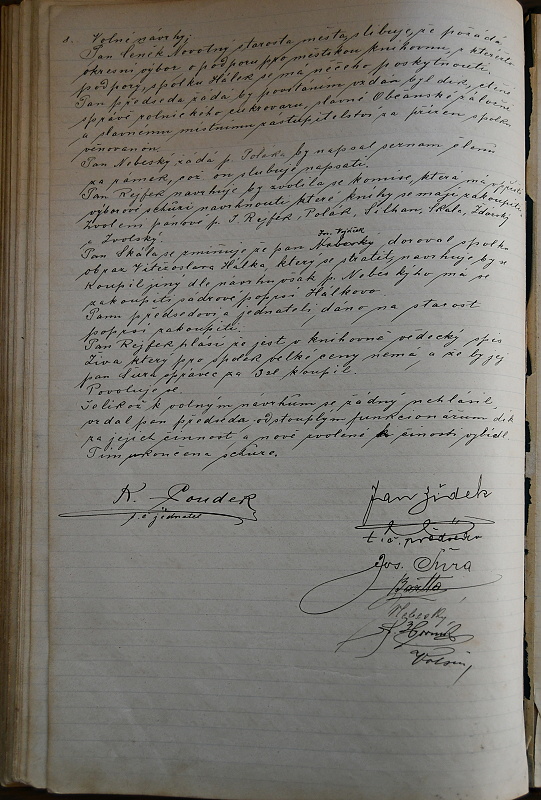 8. Volné návrhy:
Pan Čeněk Novotný starosta města slibuje, že požádá
okresní výbor o podporu pro městskou knihovnu, z kteréžto
podpory, spolku Hálek se má něčeho poskytnouti.
Pan předseda žádá by povstáním vzdán byl dík, ctěné
správě rolnického cukrovaru, slavné Občanské záložně
a slavnému místnímu zastupitelstvu za přízeň spolku
věnovanou.
Pan Nebeský žádá p. Poláka by napsal seznam členů
za rámek, což on slibuje napsati.
Pan Rejfek navrhuje by zvolila se komise, která má
výborové schůzi navrhnouti které knihy se mají zakoupiti.
Zvoleni pánové p. J. Rejfek, Polák, Silhan, Skála,
a Zvolský.
Pan Skála se zmiňuje že pan daroval spolku
obraz Vítězoslava Hálka, který se stratil, navrhuje by se
koupil jiný dle návrhu však p. Nebeskýho má se
zakoupiti sádrové poprsí Hálkovo.
Panu předsedovi a jednateli dáno na starost
poprsí zakoupiti.
Pan Rejfek hlásí že jest v knihovně vědecký spis
Živa který pro spolek velké ceny nemá, a že by jej
pan Šůra správec za 3zl koupil.
Povoluje se.
Jelikož k volným návrhům se žádný nehlásil,
vzdal pan předseda odstouplým funkcionářům dík
za jejich činnost a nově zvolené k činosti vybídl.
Tím ukončena schůze.
K. Coudek
t. č. jednatel
Jan Židek
t. č. předseda
Jos. Šůra
Bartta
Nebeský